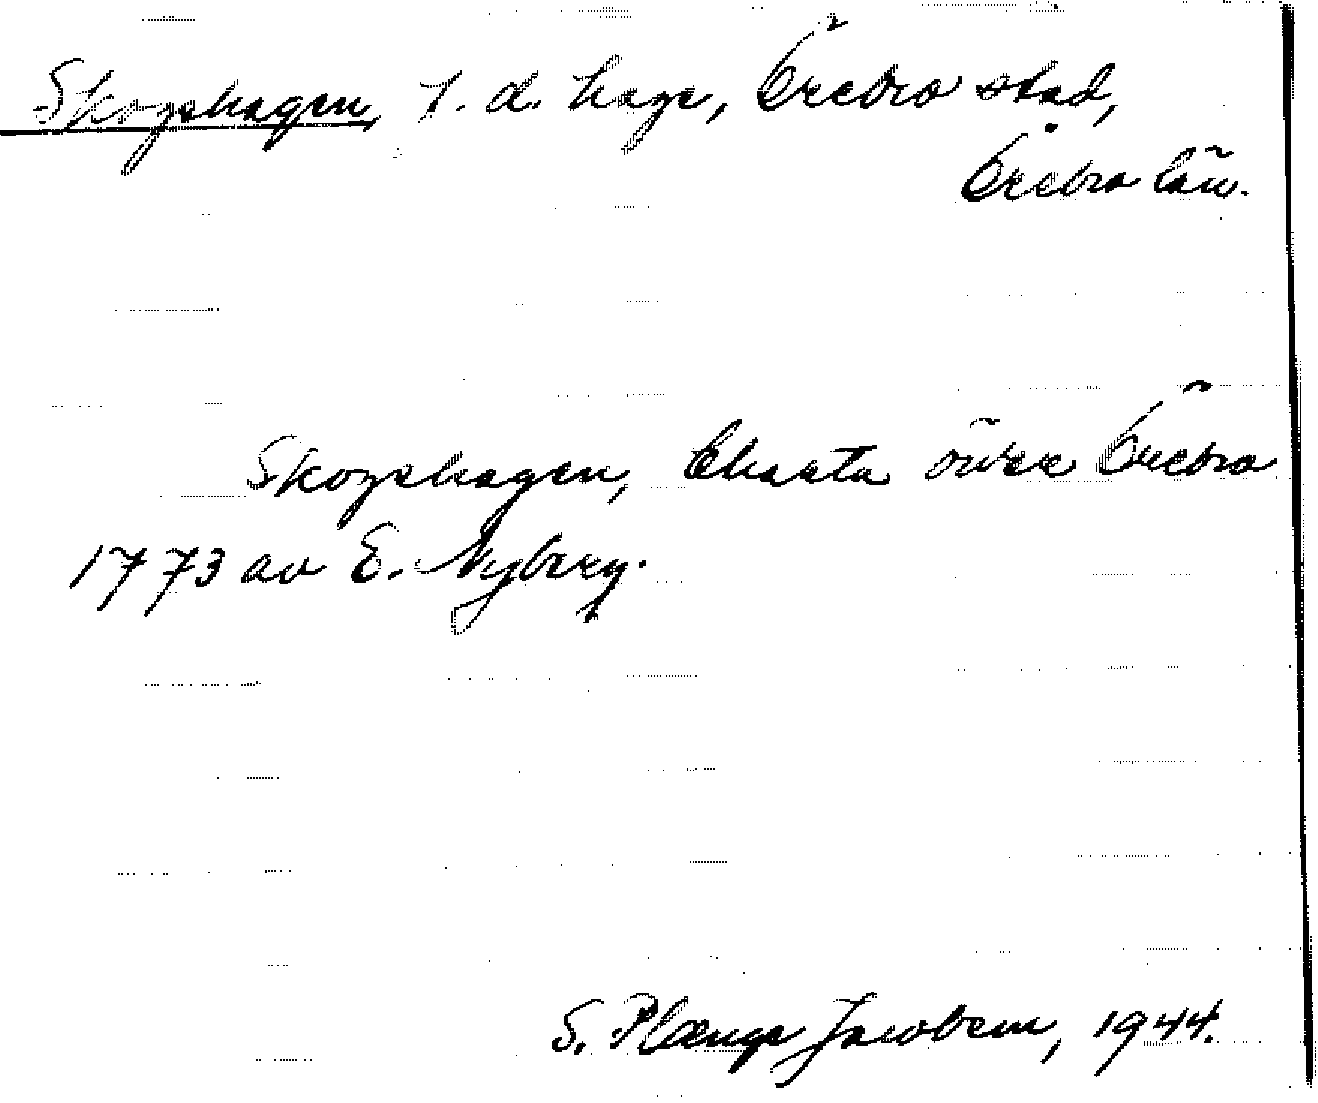 Skogshagen, f. d. hage, Örebro stad,
Örebro län.
Skogshagen, Charta över Örebro
1773 av E. Nyberg.
S. Plænge Jacobson, 1944.